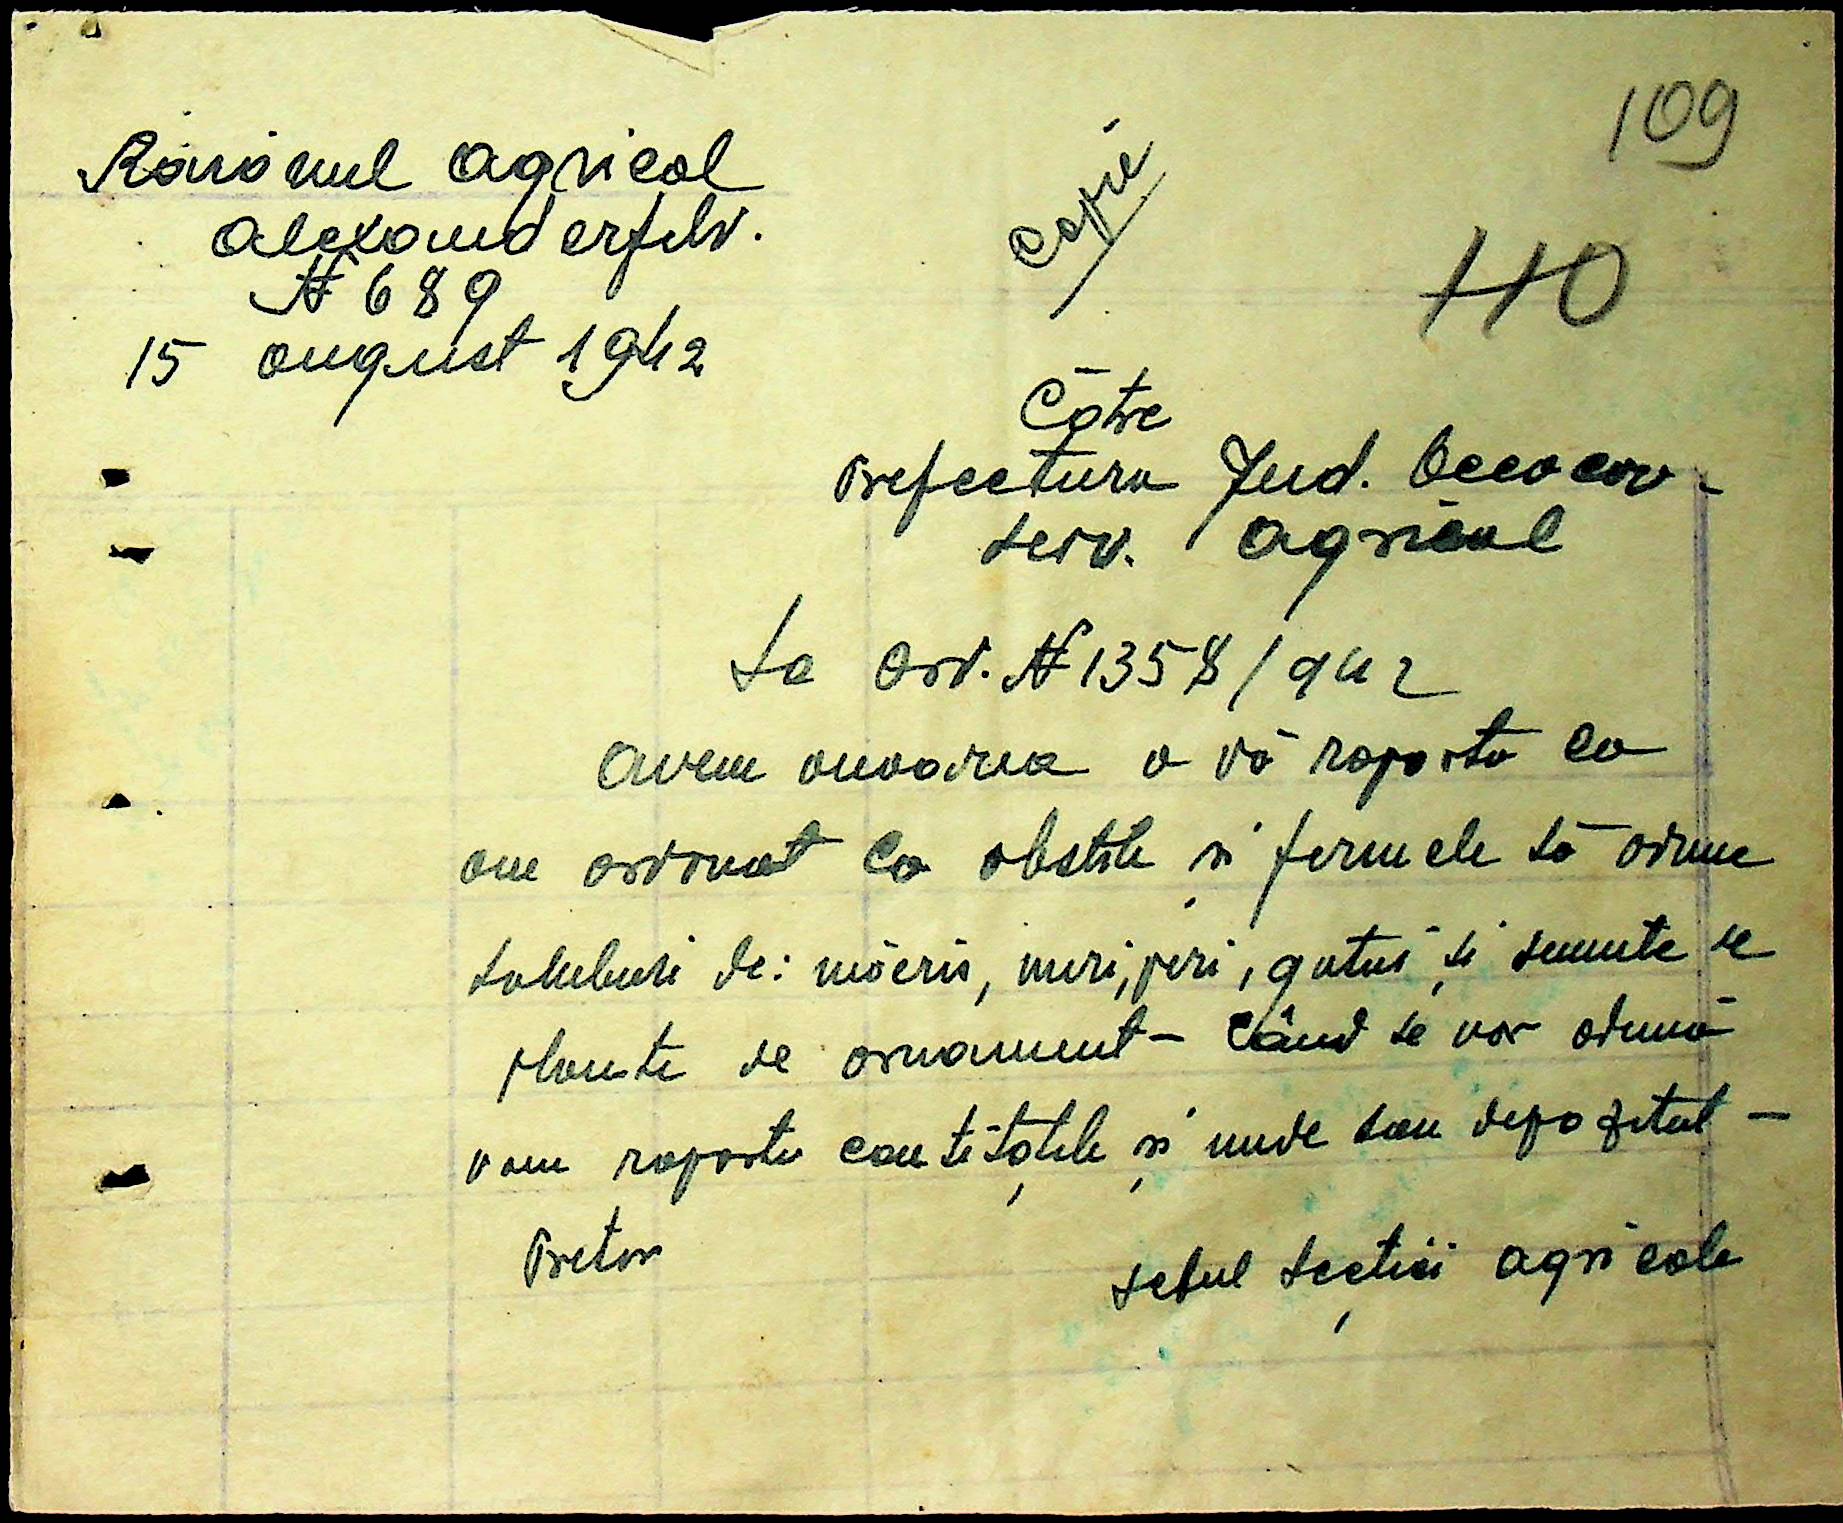 109
Raionul agricol
Copie
Alexanderfeld.
110
№ 689
15 august 1942
Către
Prefectura Jud. Oceacov -
Serv. Agricol
La ord. № 1358/942
Avem onoarea a vă raporta ca
am ordonat ca obstile și fermele să adune
samburi de: măcris, meri, peri, gutui și seminte de
plante de ornament - Când se vor aduna
vom raporta cantitățile și unde sau depozitat -
Pretor
Seful Secției agricole